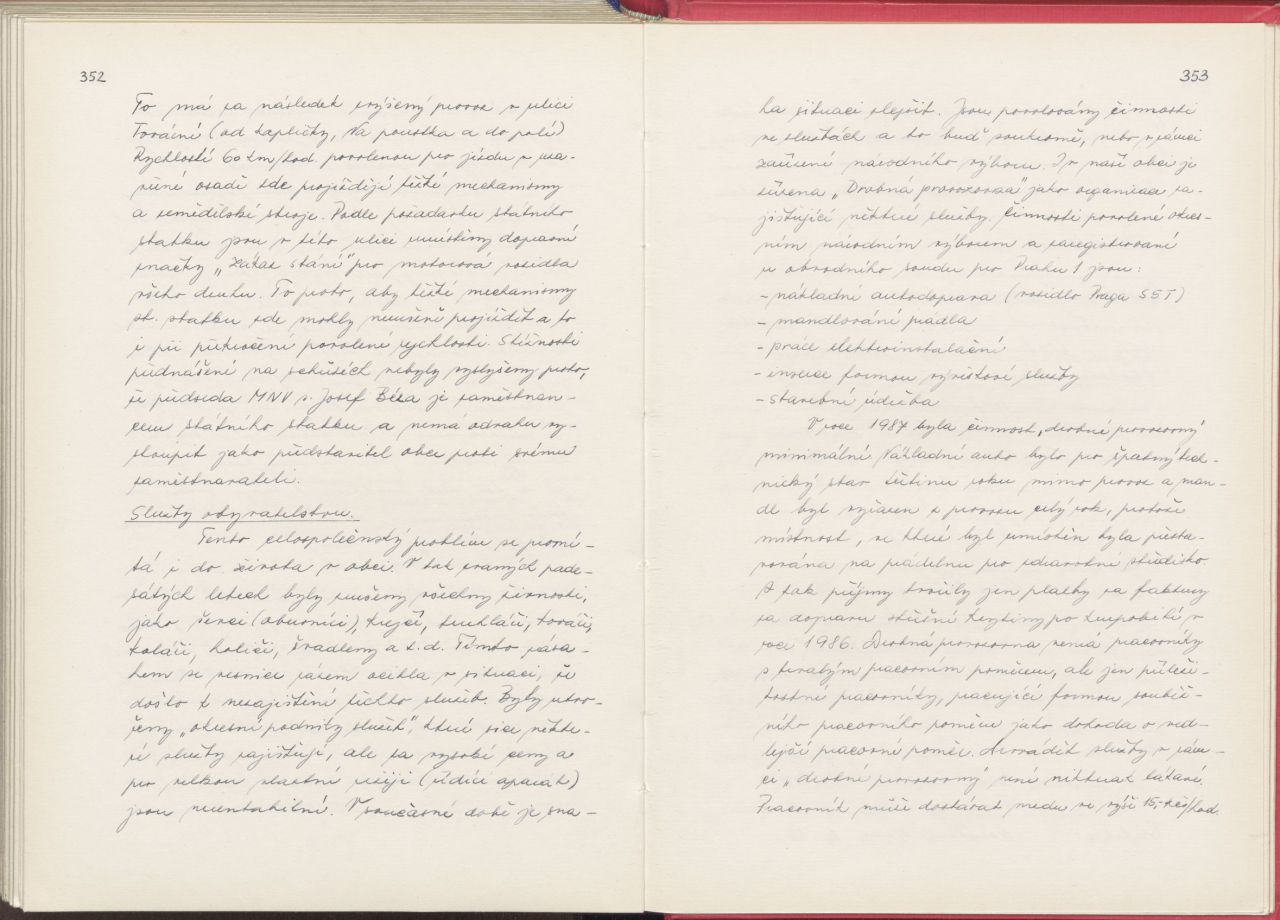 352
To má za následek zvýšený provoz v ulici
Tovární (od kapličky, Na poustka a do polí)
Rychlostí 60 km/hod. povolenou pro jízdu v uza-
vřené osadě zde projíždějí těžké mechanismy
a zemědělské stroje. Podle požadavku státního
statku jsou v této ulici umístěny dopravní
značky „Zákaz stání" pro motorová vozidla
všeho druhu. To proto, aby těžké mechanismy
st. statku zde mohly nerušeně projíždět a to
i při překročení povolené rychlosti. Stížnosti
přednášené na schůzích nebyly vyslyšeny proto,
že předseda MNV s. Josef Béza je zaměstnan-
cem státního statku a nemá odvahu vy-
stoupit jako představitel obce proti svému
zaměstnavateli.
Služby obyvatelstvu.
Tento celospolečenský problém se promí-
tá i do života v obci. V tak zvaných pade-
sátých letech byly zrušeny všechny živnosti,
jako ševci (obuvníci), krejčí, truhláři, kováři,
koláři, holiči, švadleny a t.d. Tímto zása-
hem se vesnice rázem ocitla v situaci, že
došlo k nezajištění těchto služeb. Byly utvo-
řeny „okresní podniky služeb", které sice někte-
ré služby zajišťují, ale za vysoké ceny a
pro velkou vlastní režiji (řídící aparát)
jsou nerentabilní. V současné době je sna-
353
ha situaci zlepšit. Jsou povolovány činnosti
ve službách a to buď soukromě, nebo v rámci
zařízení národního výboru. I v naší obci je
zřízena „Drobná provozovna" jako organizace za-
jišťující některé služby. Činnosti povolené okres-
ním národním výborem a zaregistrované
u obvodního soudu pro Prahu 1 jsou:
- nákladní autodoprava (vozidlo Praga S5T)
- mandlování prádla
- práce elektroinstalační
- inzerce formou vývěskové služby
- stavební údržba
V roce 1987 byla činnost „drobné provozovny"
minimální. Nákladní auto bylo pro špatný tech-
nický stav většinu roku mimo provoz a man-
dl byl vyřazen z provozu celý rok, protože
místnost, ve které byl umístěn byla přesta-
vována na prádelnu pro zdravotní středisko.
A tak příjmy tvořily jen platby za faktury
za dopravu střešní krytiny po krupobití v
roce 1986. Drobná provozovna nemá pracovníky
s trvalým pracovním poměrem, ale jen příleži-
tostné pracovníky, pracující formou souběž-
ního pracovního poměru jako dohoda o ved-
lejší pracovní poměr. Provádět služby v rám-
ci „drobné provozovny" není nikterak lákavé.
Pracovník může dostávat mzdu ve výši 15,- Kčs/hod.